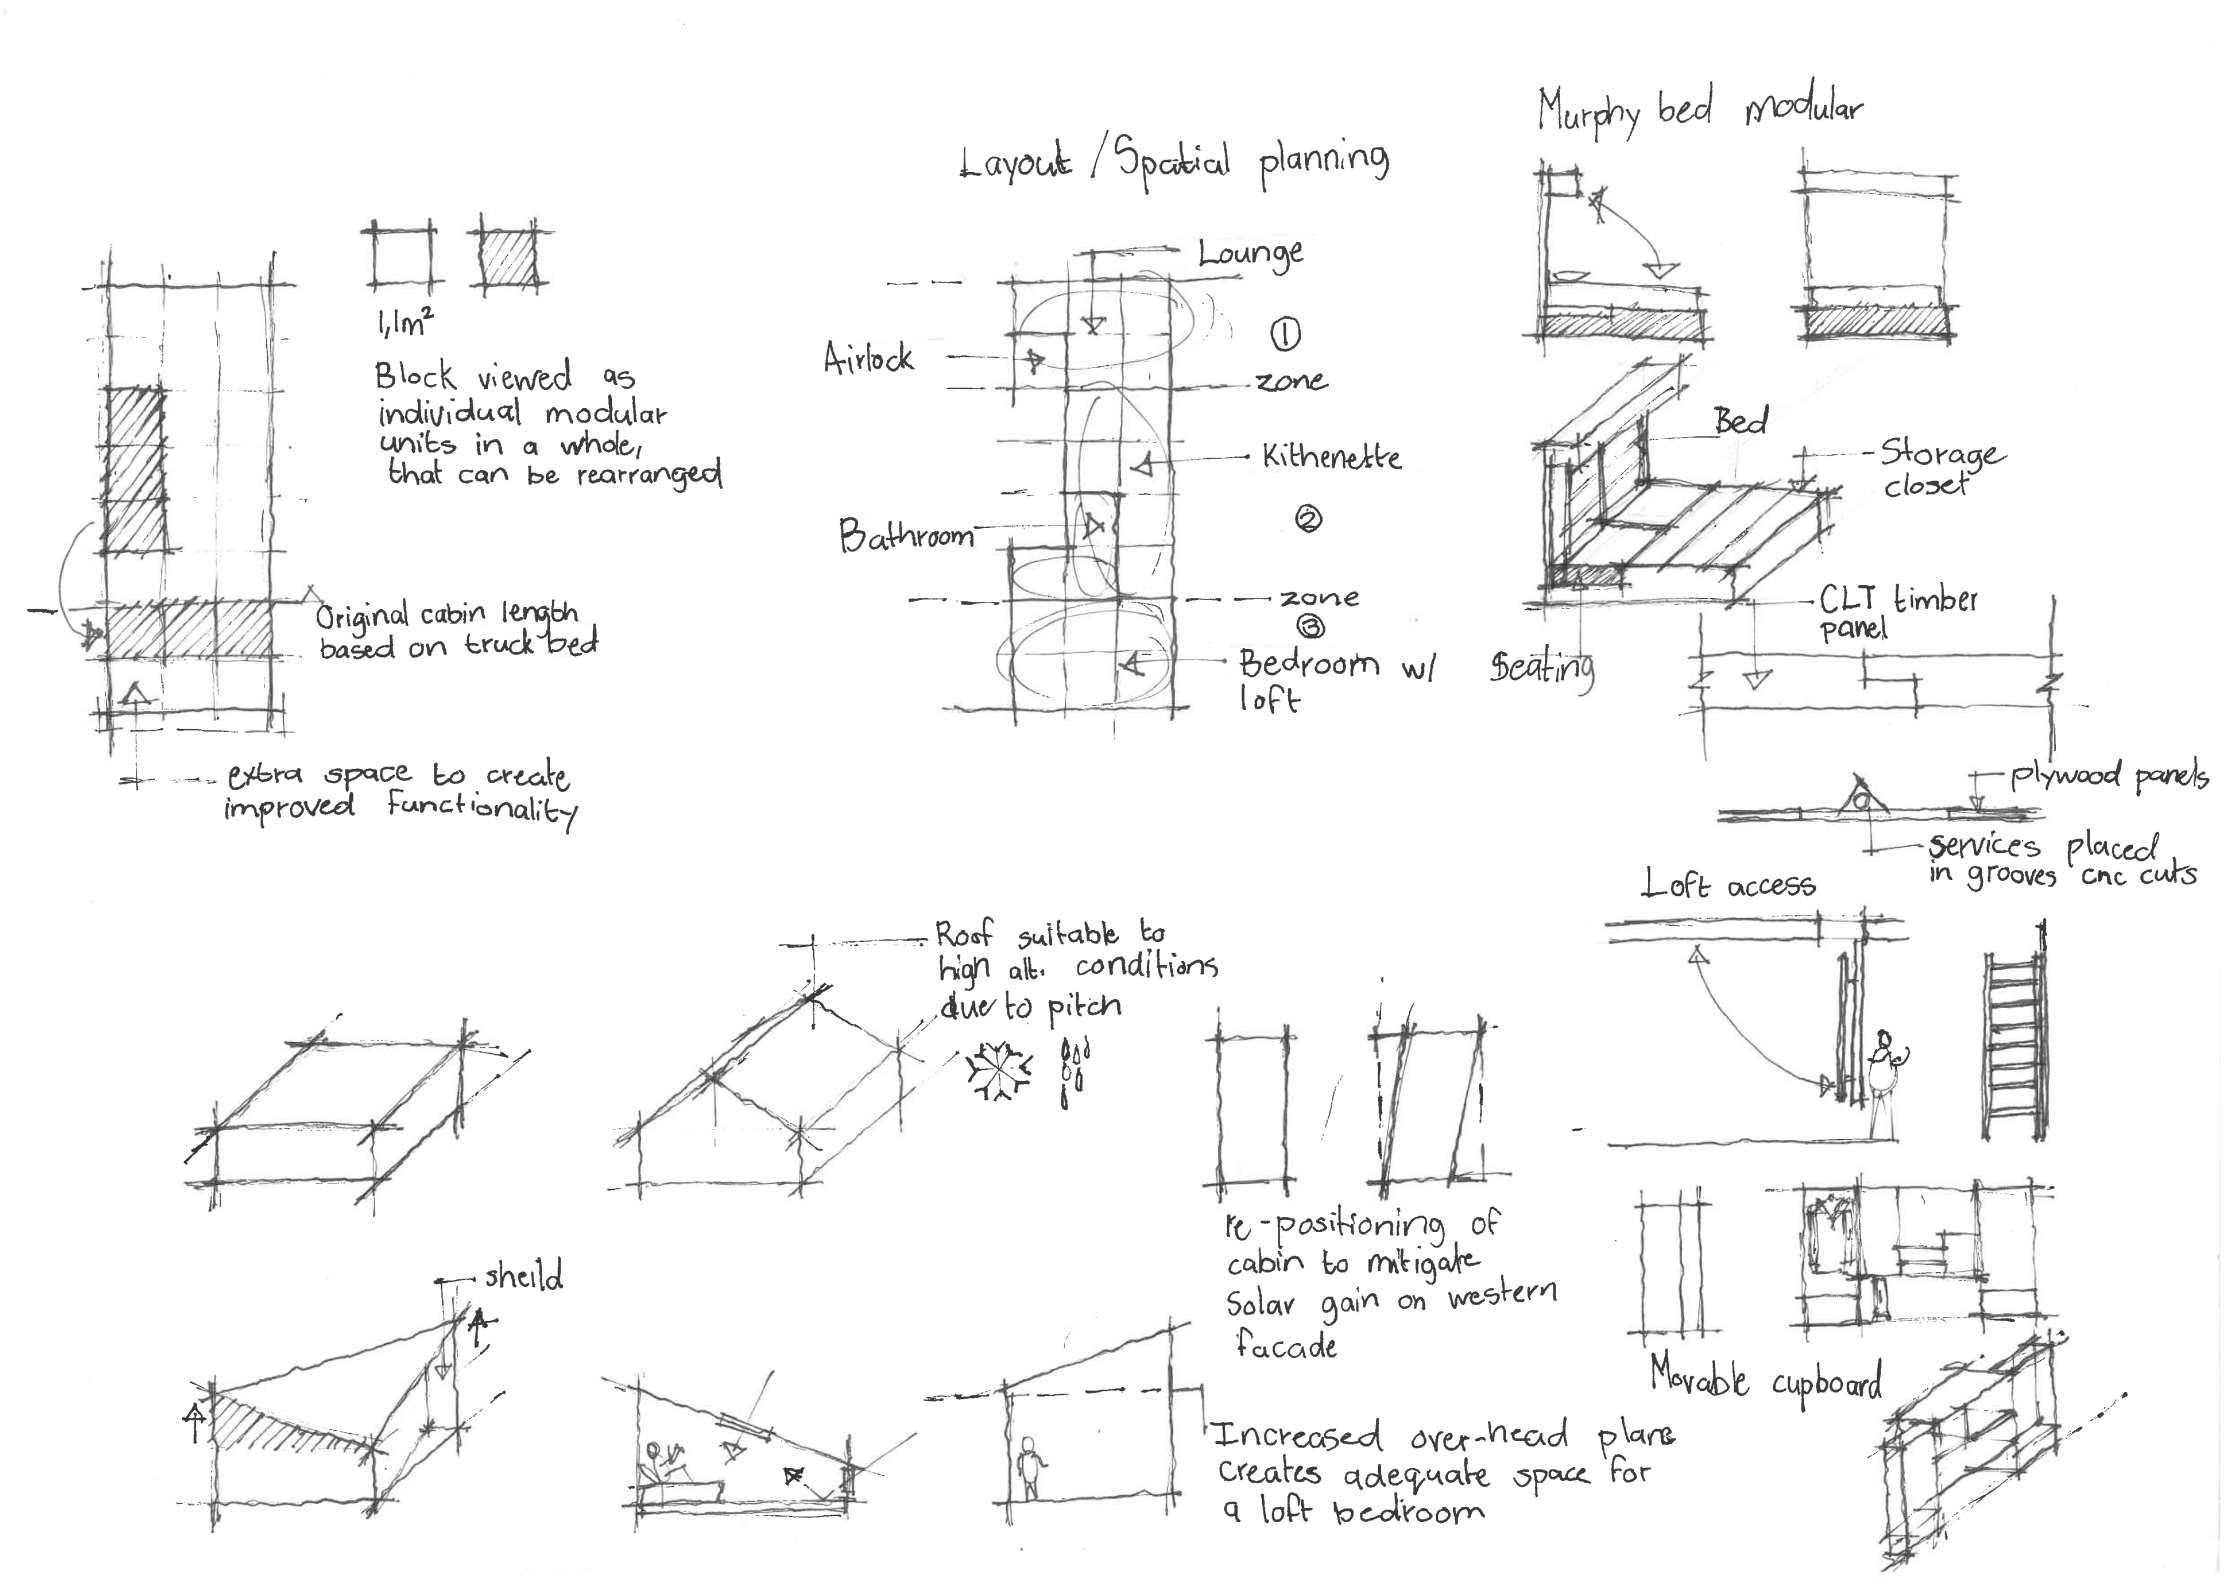 1,1m²
Block viewed as
individual modular
units in a whole,
that can be rearranged
Original cabin length
based on truck bed
extra space to create
improved functionality
Layout / Spatial planning
Lounge
①
Airlock
zone
Kithenette
Bathroom
②
zone
③
Bedroom w/
loft
Murphy bed modular
Bed
Storage
closet
CLT timber
panel
Seating
plywood panels
services placed
in grooves cnc cuts
Loft access
Movable cupboard
Roof suitable to
high alt. conditions
due to pitch
re-positioning of
cabin to mitigate
Solar gain on western
facade
sheild
Increased over-head plane
creates adequate space for
a loft bedroom